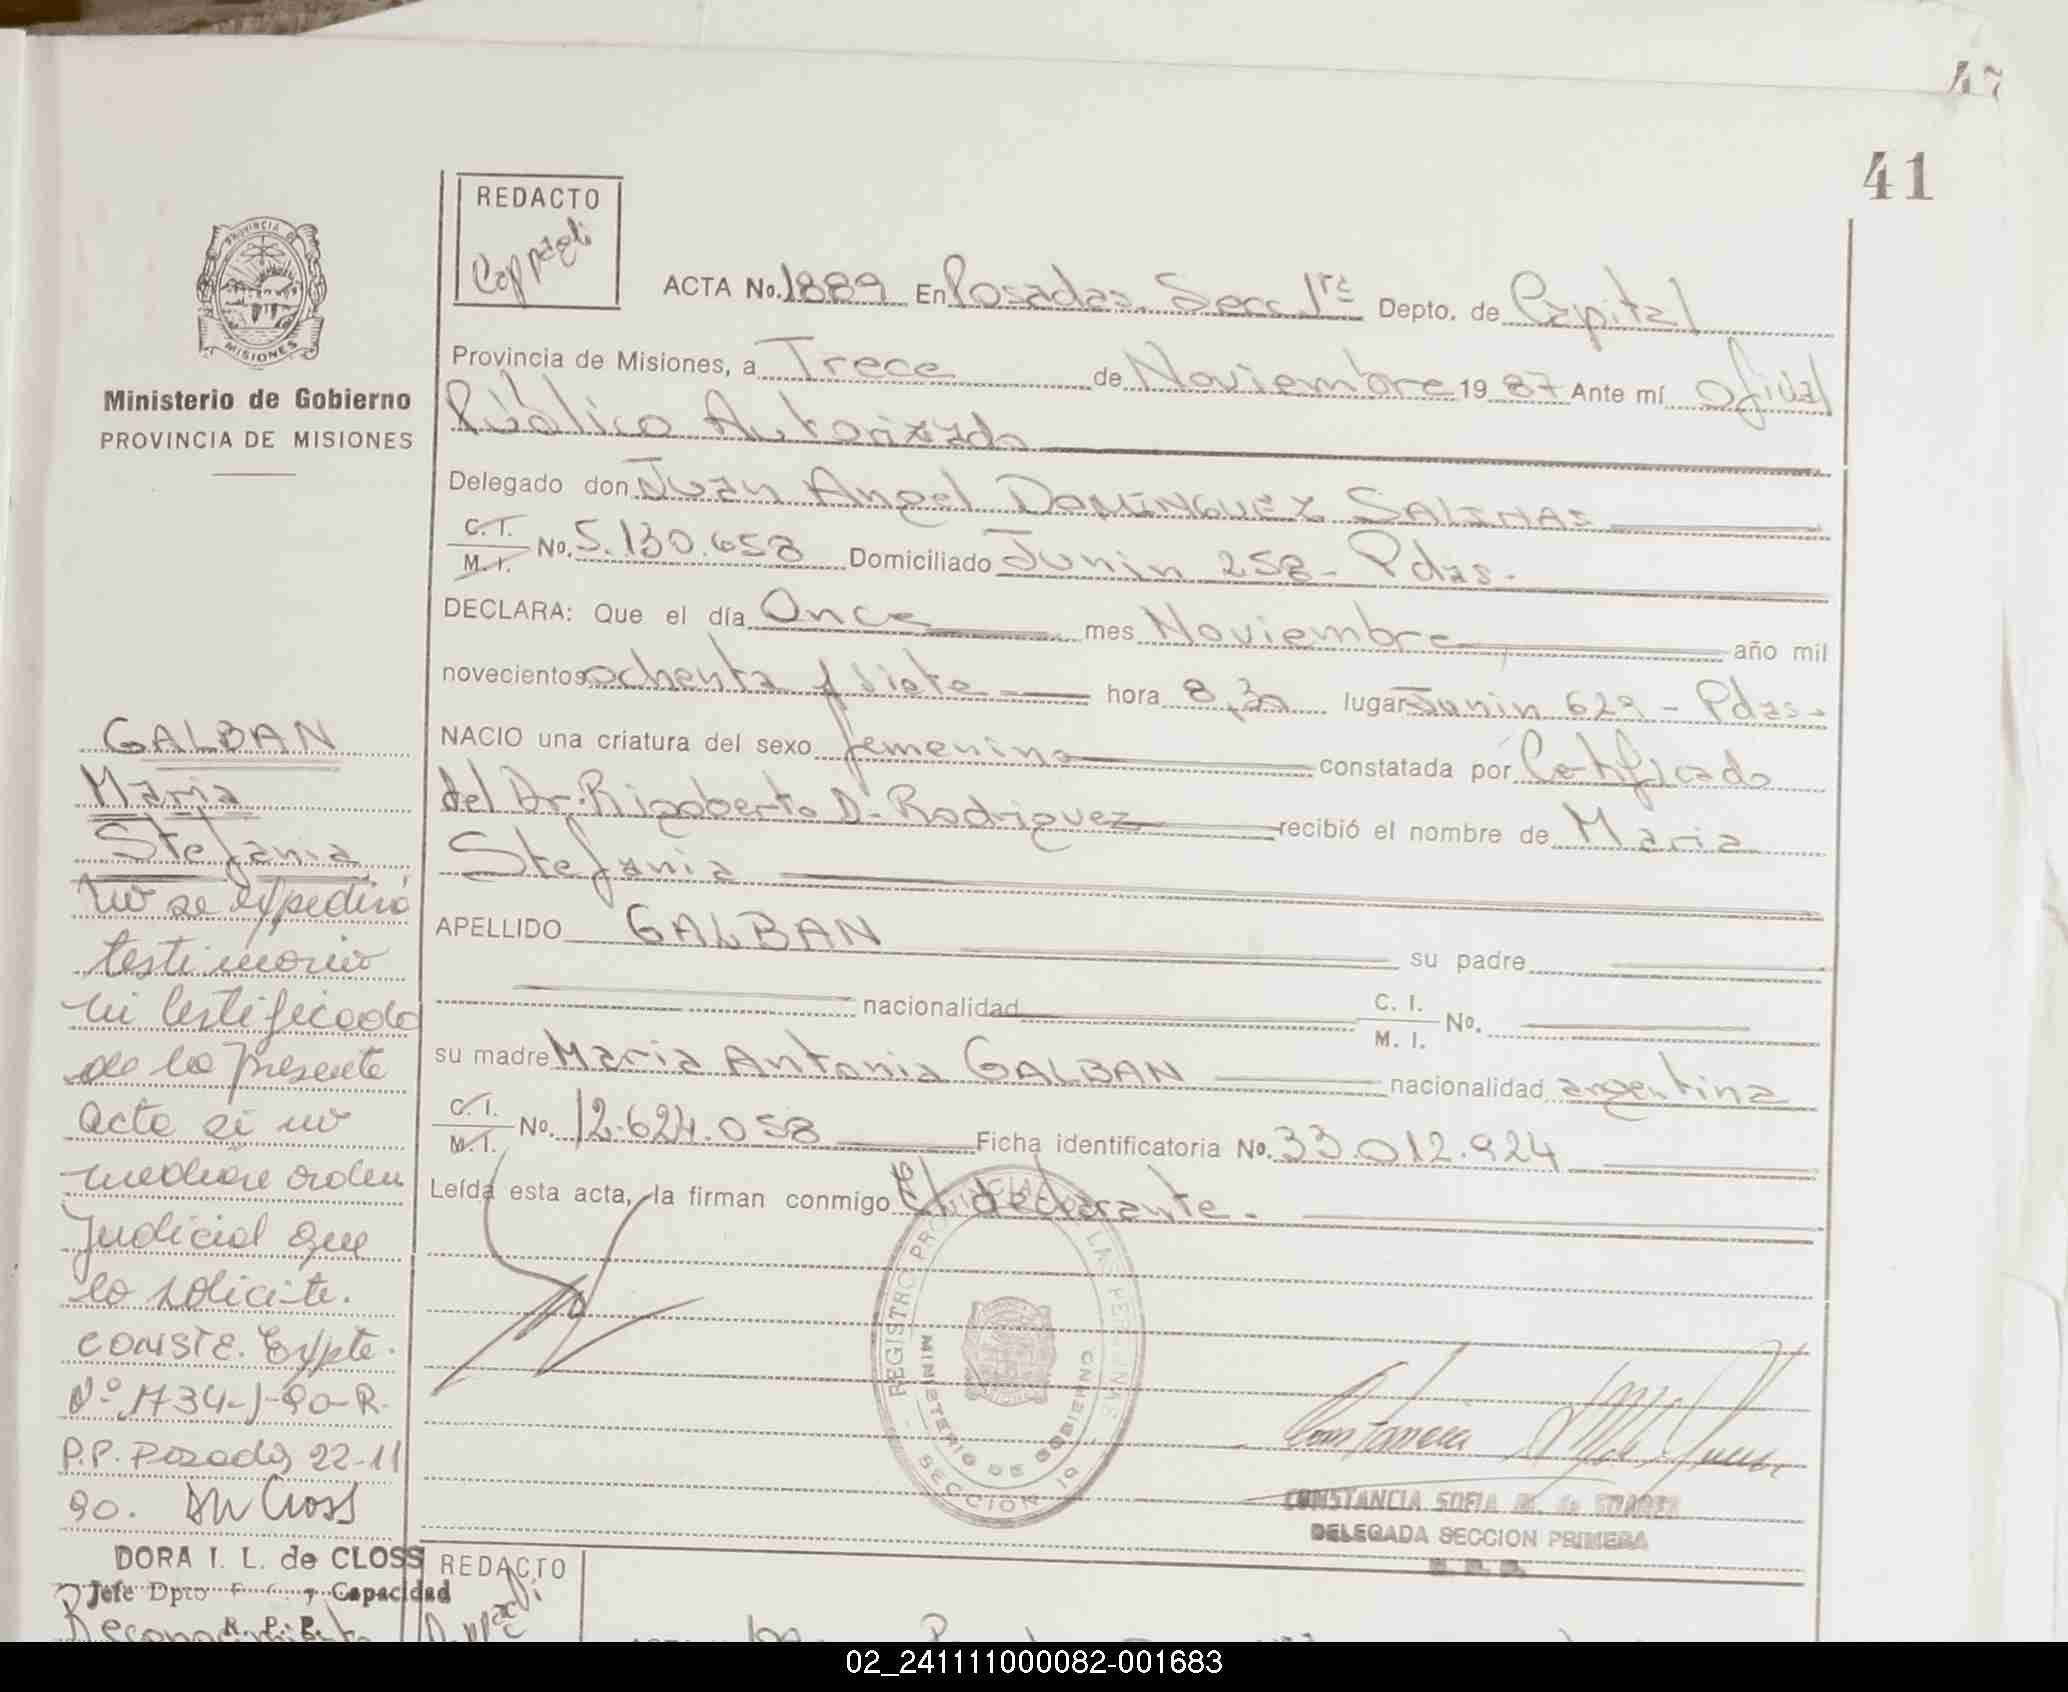 47
41
REDACTO
Coppagli
PROVINCIA DE
MISIONES
Ministerio de Gobierno
PROVINCIA DE MISIONES
ACTA No. 1889 En Posadas Secc 1ra Depto. de Capital
Provincia de Misiones, a Trece de Noviembre 19 87 Ante mí Oficial
Público Autorizado
Delegado don Juan Angel DOMINGUEZ SALINAS
C. I.
M. I. No. 5.130.658 Domiciliado Junin 258 - Pdas.
DECLARA: Que el día Once mes Noviembre año mil
novecientos ochenta y siete hora 8,30 lugar Junin 629 - Pdas.
NACIO una criatura del sexo femenino constatada por Certificado
del Dr. Rigoberto D. Rodriguez recibió el nombre de Maria
Stefania
APELLIDO GALBAN su padre
nacionalidad C. I.
M. I. No.
su madre Maria Antonia GALBAN nacionalidad argentina
C. I.
M. I. No. 12.624.058 Ficha identificatoria No. 33.012.924
Leída esta acta, la firman conmigo El declarante.
GALBAN
Maria
Stefania
No se expedirá
testimonio
ni certificado
de la presente
acta si no
mediare orden
judicial que
lo solicite.
CONSTE. Expte.
Nº 1734-J-90-R.
P.P. Posadas 22-11
90. DW Closs
DORA I. L. de CLOSS
Jefe Dpto y Capacidad
R. P. P.
REGISTRO PROVINCIAL DE LAS PERSONAS
MINISTERIO DE GOBIERNO
SECCION 1a
Constancia
CONSTANCIA SOFIA M. de SUAREZ
DELEGADA SECCION PRIMERA
Reconocimiento
REDACTO
02_241111000082-001683